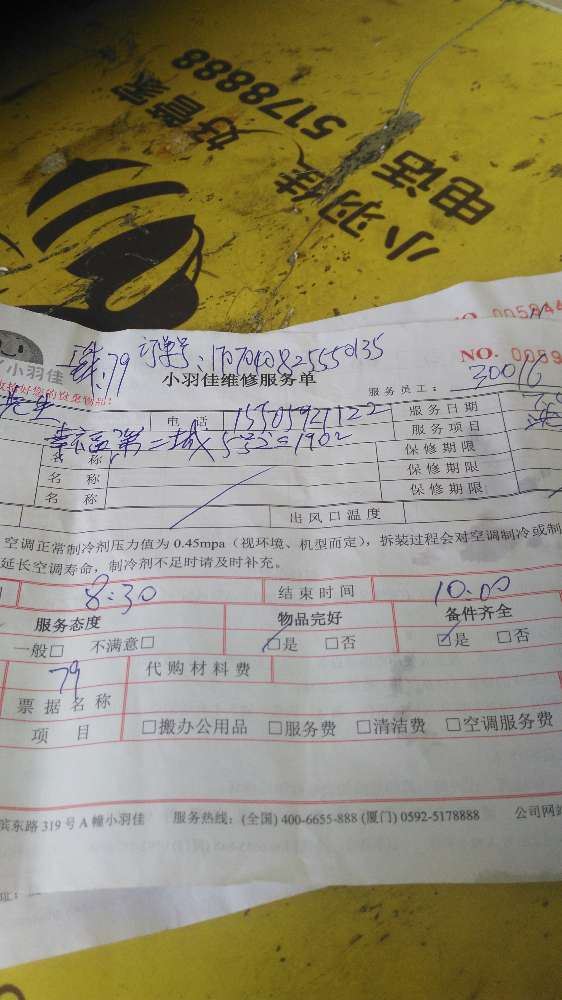 好管家
5178888
小羽佳
电话
NO. 00584
小羽佳
79 订单号:
NO. 0059
小羽佳维修服务单
服务员工: 30016
电 话 15505921122 服务日期
第二城 服务项目
名 称 保修期限
名 称 保修期限
名 称 保修期限
出风口温度
空调正常制冷剂压力值为 0.45mpa(视环境、机型而定),拆装过程会对空调制冷或制
延长空调寿命,制冷剂不足时请及时补充。
8:30 结束时间 10:00
服务态度 物品完好 备件齐全
一般□ 不满意□ ☑是 □否 ☑是 □否
79 代购材料费
票据名称
项 目 □搬办公用品 □服务费 □清洁费 □空调服务费
滨东路 319 号 A 幢小羽佳 服务热线: (全国) 400-6655-888 (厦门) 0592-5178888 公司网站
址: